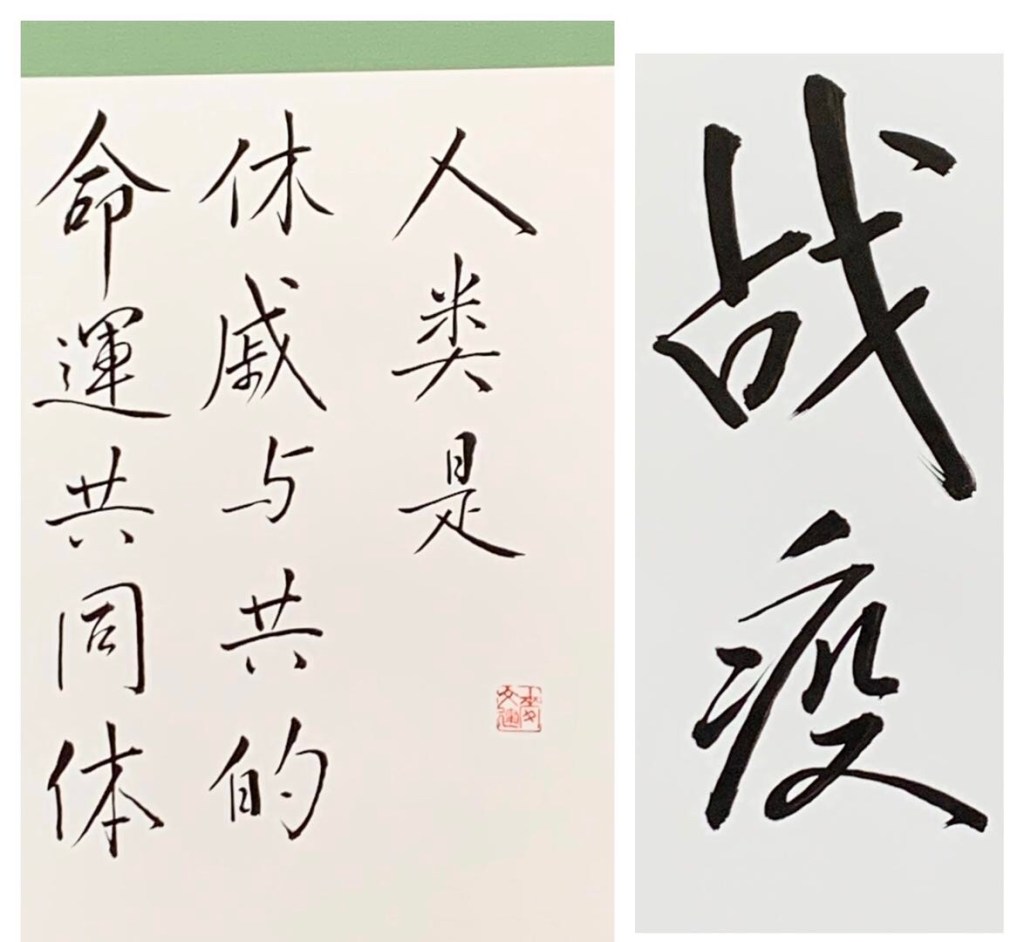 人类是
休戚与共的
命運共同体
战疫